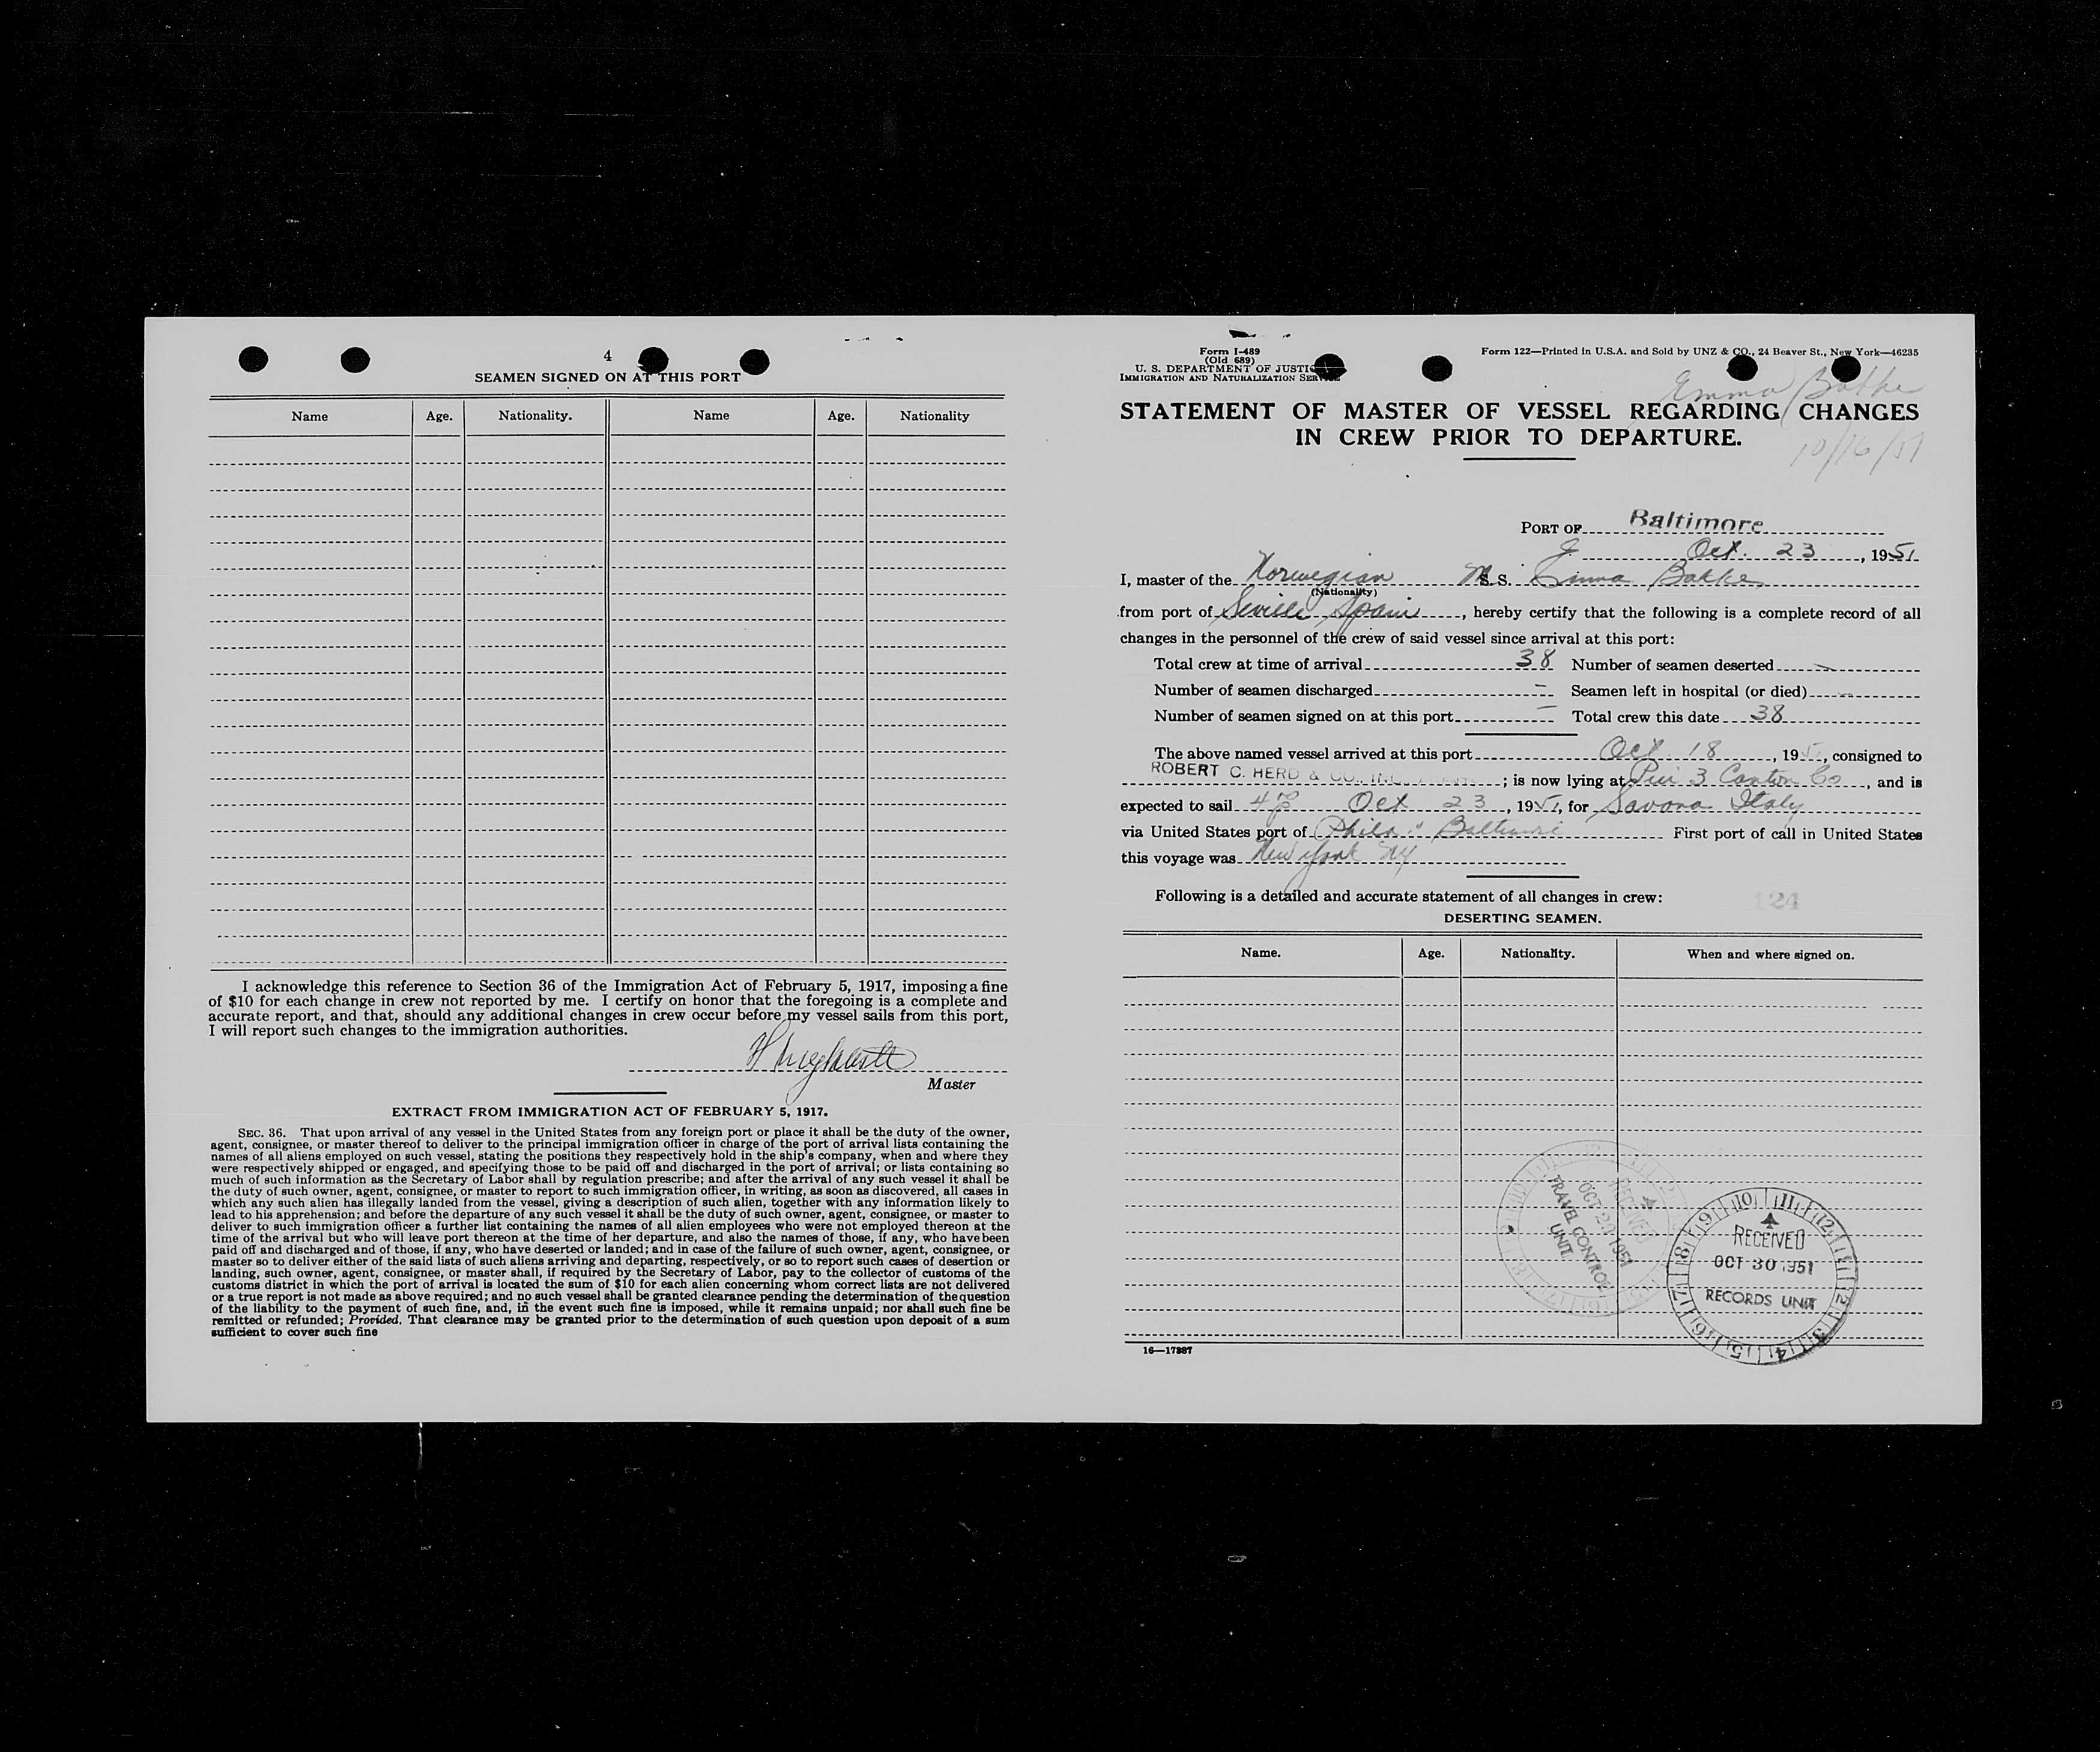 4
SEAMEN SIGNED ON AT THIS PORT
Name Age. Nationality. Name Age. Nationality
I acknowledge this reference to Section 36 of the Immigration Act of February 5, 1917, imposing a fine
of $10 for each change in crew not reported by me. I certify on honor that the foregoing is a complete and
accurate report, and that, should any additional changes in crew occur before my vessel sails from this port,
I will report such changes to the immigration authorities.
Master
EXTRACT FROM IMMIGRATION ACT OF FEBRUARY 5, 1917.
SEC. 36. That upon arrival of any vessel in the United States from any foreign port or place it shall be the duty of the owner,
agent, consignee, or master thereof to deliver to the principal immigration officer in charge of the port of arrival lists containing the
names of all aliens employed on such vessel, stating the positions they respectively hold in the ship's company, when and where they
were respectively shipped or engaged, and specifying those to be paid off and discharged in the port of arrival; or lists containing so
much of such information as the Secretary of Labor shall by regulation prescribe; and after the arrival of any such vessel it shall be
the duty of such owner, agent, consignee, or master to report to such immigration officer, in writing, as soon as discovered, all cases in
which any such alien has illegally landed from the vessel, giving a description of such alien, together with any information likely to
lead to his apprehension; and before the departure of any such vessel it shall be the duty of such owner, agent, consignee, or master to
deliver to such immigration officer a further list containing the names of all alien employees who were not employed thereon at the
time of the arrival but who will leave port thereon at the time of her departure, and also the names of those, if any, who have been
paid off and discharged and of those, if any, who have deserted or landed; and in case of the failure of such owner, agent, consignee, or
master so to deliver either of the said lists of such aliens arriving and departing, respectively, or so to report such cases of desertion or
landing, such owner, agent, consignee, or master shall, if required by the Secretary of Labor, pay to the collector of customs of the
customs district in which the port of arrival is located the sum of $10 for each alien concerning whom correct lists are not delivered
or a true report is not made as above required; and no such vessel shall be granted clearance pending the determination of the question
of the liability to the payment of such fine, and, in the event such fine is imposed, while it remains unpaid; nor shall such fine be
remitted or refunded; Provided, That clearance may be granted prior to the determination of such question upon deposit of a sum
sufficient to cover such fine
Form I-489
(Old 689)
U. S. DEPARTMENT OF JUSTICE
IMMIGRATION AND NATURALIZATION SERVICE
Form 122—Printed in U.S.A. and Sold by UNZ & CO., 24 Beaver St., New York—46235
Emma Bakke
STATEMENT OF MASTER OF VESSEL REGARDING CHANGES
IN CREW PRIOR TO DEPARTURE.
10/16/51
PORT OF Baltimore
Oct. 23, 1951
I, master of the Norwegian M.S. Emma Bakke
(Nationality)
from port of Seville Spain, hereby certify that the following is a complete record of all
changes in the personnel of the crew of said vessel since arrival at this port:
Total crew at time of arrival 38 Number of seamen deserted -
Number of seamen discharged - Seamen left in hospital (or died) -
Number of seamen signed on at this port - Total crew this date 38
The above named vessel arrived at this port Oct 18, 1951, consigned to
ROBERT C. HERD & CO., INC. ; is now lying at Pier 3 Canton Co, and is
expected to sail 4 P Oct 23, 1951, for Savona Italy
via United States port of Phila & Baltimore First port of call in United States
this voyage was New York NY
Following is a detailed and accurate statement of all changes in crew:
24
DESERTING SEAMEN.
Name. Age. Nationality. When and where signed on.
RECEIVED
OCT 29 1951
TRAVEL CONTROL
UNIT
RECEIVED
OCT 30 1951
RECORDS UNIT
16—17887